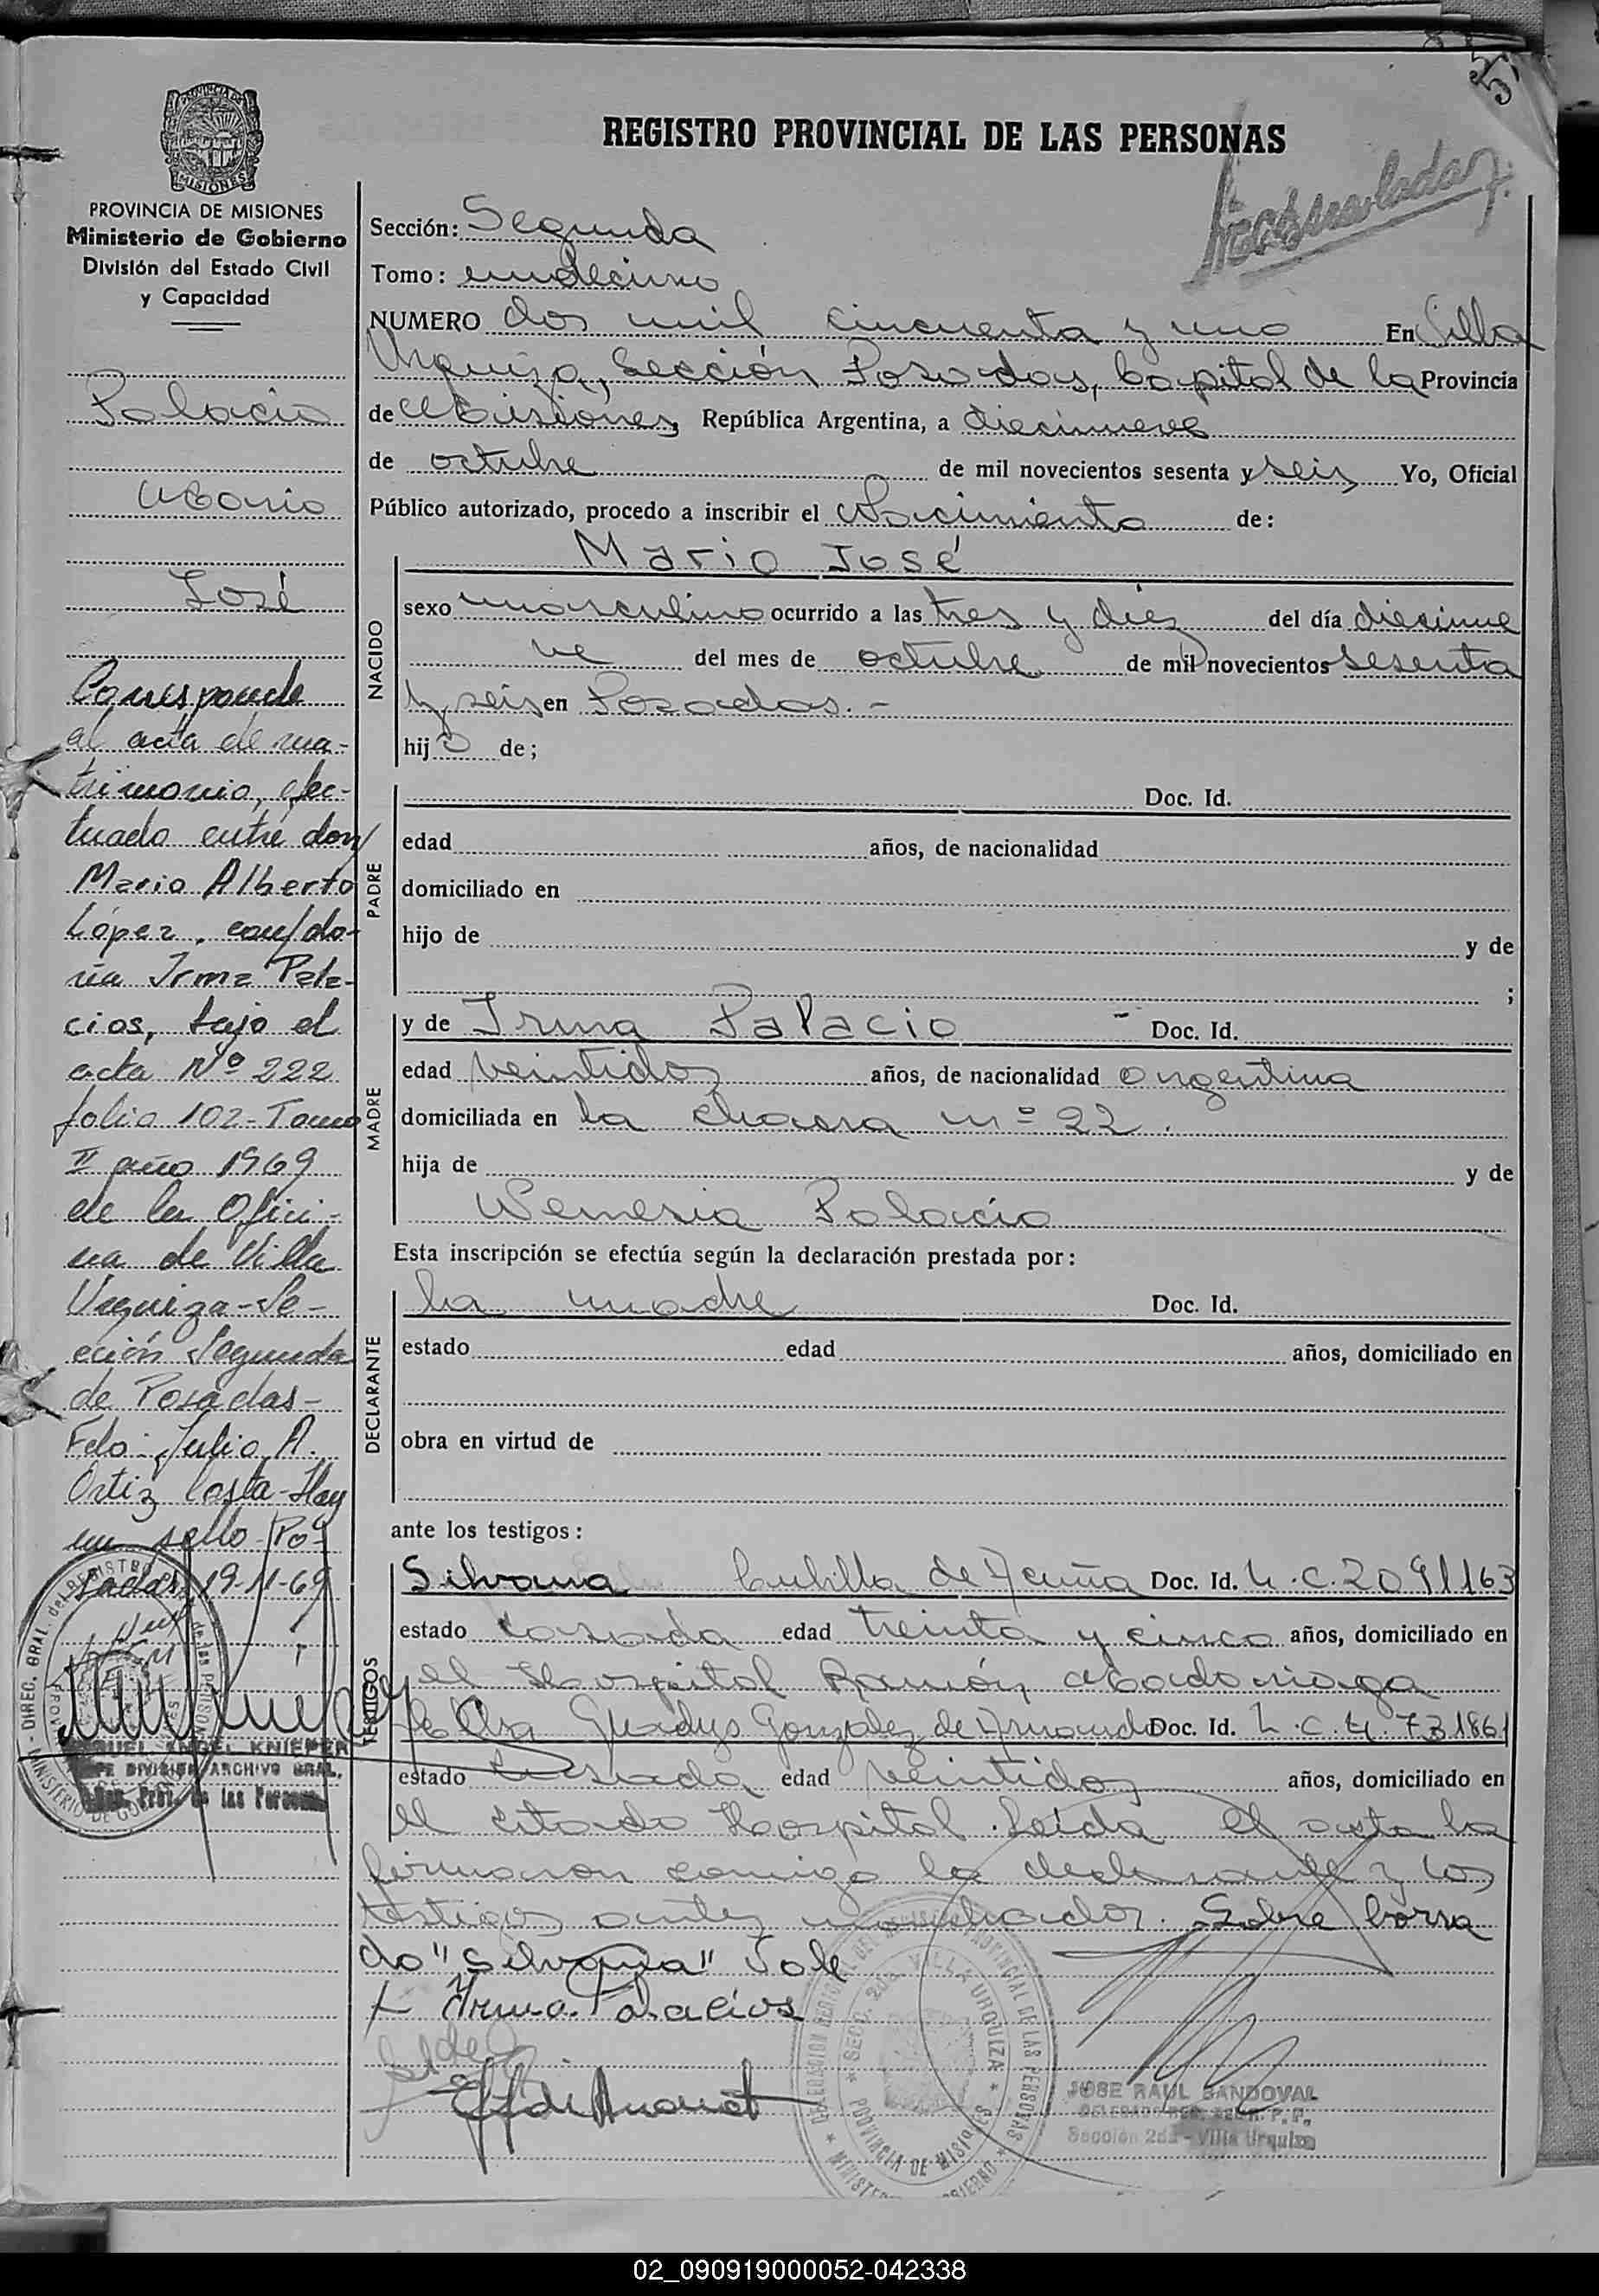 55
REGISTRO PROVINCIAL DE LAS PERSONAS
PROVINCIA DE MISIONES
Ministerio de Gobierno
División del Estado Civil
y Capacidad
Palacio
Mario
José
Corresponde
al acta de ma-
trimonio, efec-
tuado entre don
Mario Alberto
López, con do-
ña Irma Pala-
cios, bajo el
acta Nº 222
folio 102-Tomo
II año 1969
de la Ofici-
na de Villa
Urquiza-Se-
cción Segunda
de Posadas-
Fdo. Julio A.
Ortiz Costa-Hay
un sello-Po-
sadas, 19-11-69
MIGUEL ANGEL KNIEPER
JEFE DIVISION ARCHIVO GRAL.
Reg. Prov. de las Personas
Sección: Segunda
Tomo: undécimo
NUMERO dos mil cincuenta y uno En Villa
Urquiza, Sección Posadas, Capital de la Provincia
de Misiones, República Argentina, a diecinueve
de octubre de mil novecientos sesenta y seis Yo, Oficial
Público autorizado, procedo a inscribir el Nacimiento de:
NACIDO
Mario José
sexo masculino ocurrido a las tres y diez del día diecinue
ve del mes de octubre de mil novecientos sesenta
y seis en Posadas.-
hijo de;
PADRE
Doc. Id.
edad años, de nacionalidad
domiciliado en
hijo de y de
;
MADRE
y de Irma Palacio - Doc. Id.
edad veintidos años, de nacionalidad argentina
domiciliada en la chacra nº 22.
hija de y de
Nemesia Palacio
Esta inscripción se efectúa según la declaración prestada por:
DECLARANTE
la madre Doc. Id.
estado edad años, domiciliado en
obra en virtud de
ante los testigos:
TESTIGOS
Silvana Cubilla de Acuña Doc. Id. L.C.2091163
estado casada edad treinta y cinco años, domiciliado en
el Hospital Ramón Madariaga
Gladys Gonzalez de Doc. Id. L.C.4.731861
estado casada edad veintidos años, domiciliado en
el citado Hospital. Leída el acta la
firmaron conmigo la declarante y los
testigos antes nombrados. Sobre borra
do "Silvana" Vale
Irma Palacios
DELEGACION DEL REGISTRO PROVINCIAL DE LAS PERSONAS
SECC. 2da VILLA URQUIZA
PROVINCIA DE MISIONES
JOSE RAUL SANDOVAL
Sección 2da - Villa Urquiza
02_090919000052-042338